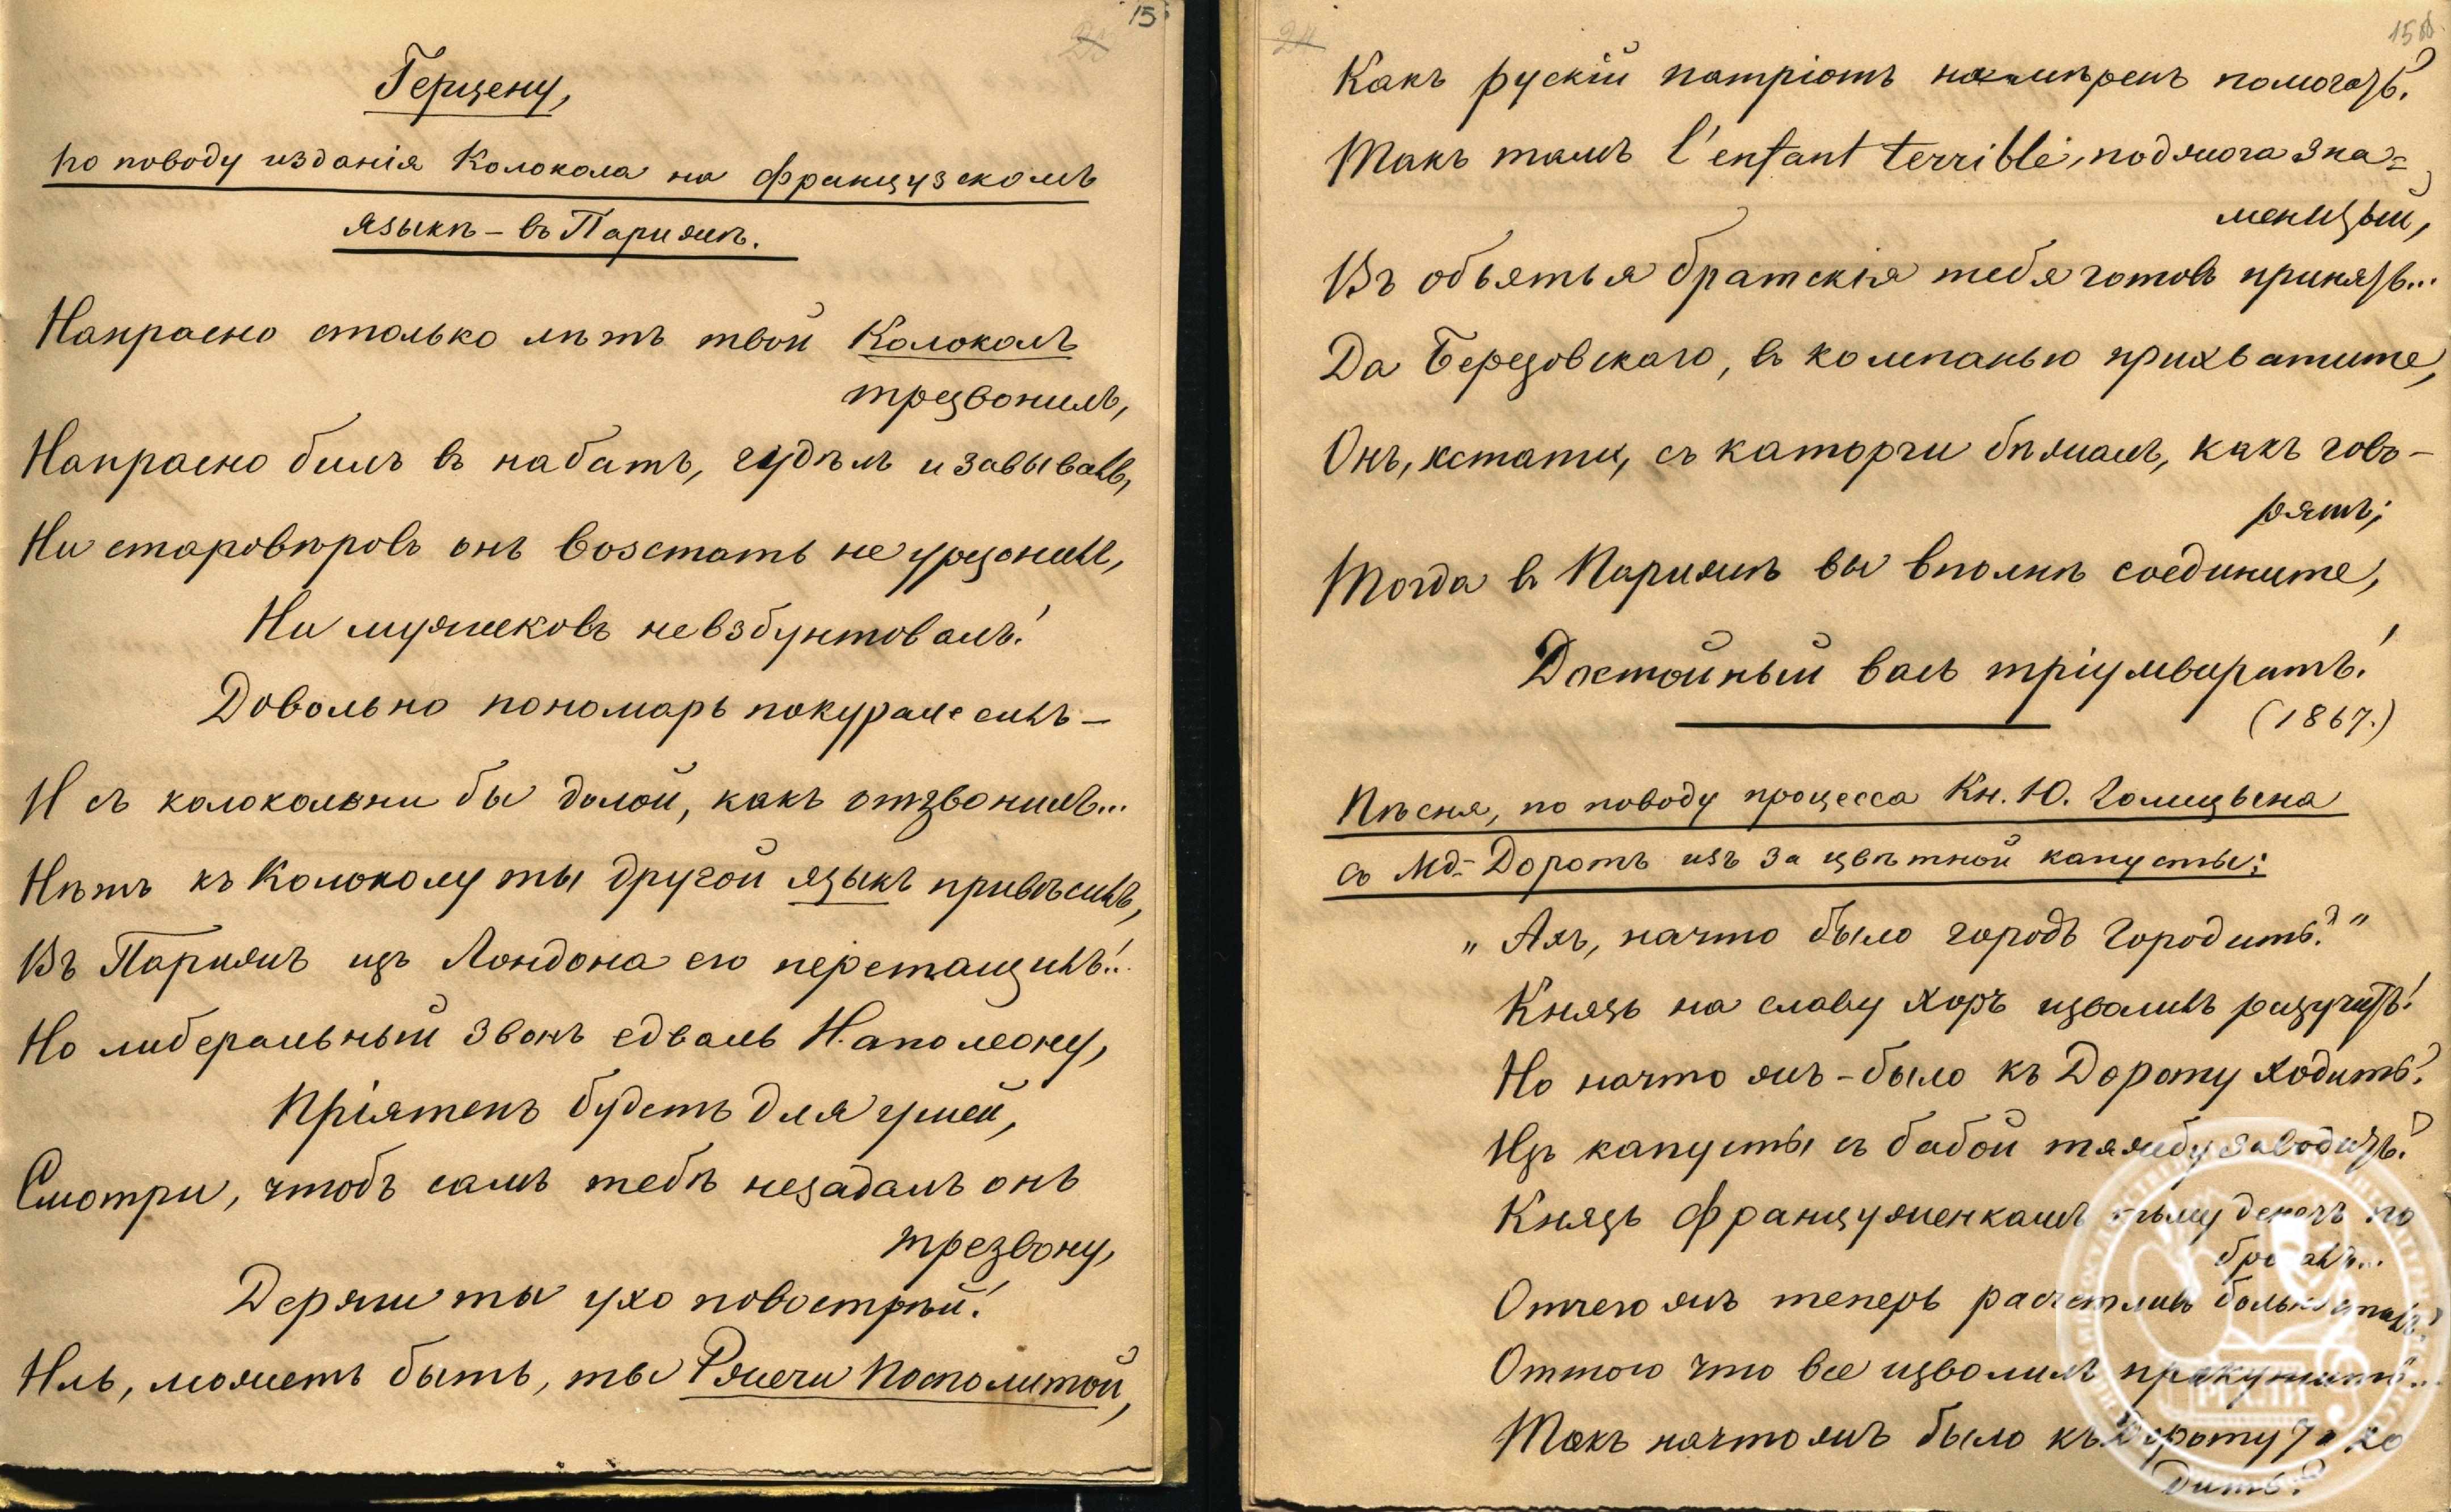 15.
Герцену,
по поводу изданія Колокола на французскомъ
языкѣ – въ Парижѣ.
Напрасно столько лѣтъ твой Колоколъ
трезвонилъ,
Напрасно билъ въ набатъ, гудѣлъ и завывалъ,
Ни старовѣровъ онъ возстать не урезонилъ,
Ни мужиковъ невзбунтовалъ!
Довольно пономарь покуралесилъ –
И съ колокольни бы долой, какъ отзвонилъ...
Нѣтъ къ Колоколу ты другой языкъ привѣсилъ,
Въ Парижъ изъ Лондона его перетащилъ!..
Но либеральный звонъ едваль Наполеону,
Пріятенъ будетъ для ушей,
Смотри, чтобъ самъ тебѣ незадалъ онъ
трезвону,
Держи ты ухо повострѣй!
Иль, можетъ быть, ты Рѣчи Посполитой,
24
15об.
Какъ рускій патріотъ намѣренъ помогать?
Такъ тамъ l'enfant terrible, подмога зна=
менитый,
Въ объятья братскія тебя готовъ принять...
Да Березовскаго, въ компанью прихватите,
Онъ, кстати, съ каторги бѣжалъ, какъ гово–
рятъ;
Тогда въ Парижѣ вы вполнѣ соедините,
Достойный васъ тріумвиратъ!
(1867.)
Пѣсня, по поводу процесса Кн. Ю. Голицына
съ Мд- Доротъ изъ за цвѣтной капусты:
„Ахъ, начто было городъ городить?"
Князь на славу хоръ изволилъ разучить!
Но начто жъ-было къ Дороту ходить?
Изъ капусты съ бабой тяжбу заводить?
Князь француженкамъ тьму денегъ по
бросалъ...
Отчего жъ теперь расчетливъ больно сталъ?
Оттого что все изволилъ прокутить...
Такъ начто жъ было къ Дороту захо
дить?